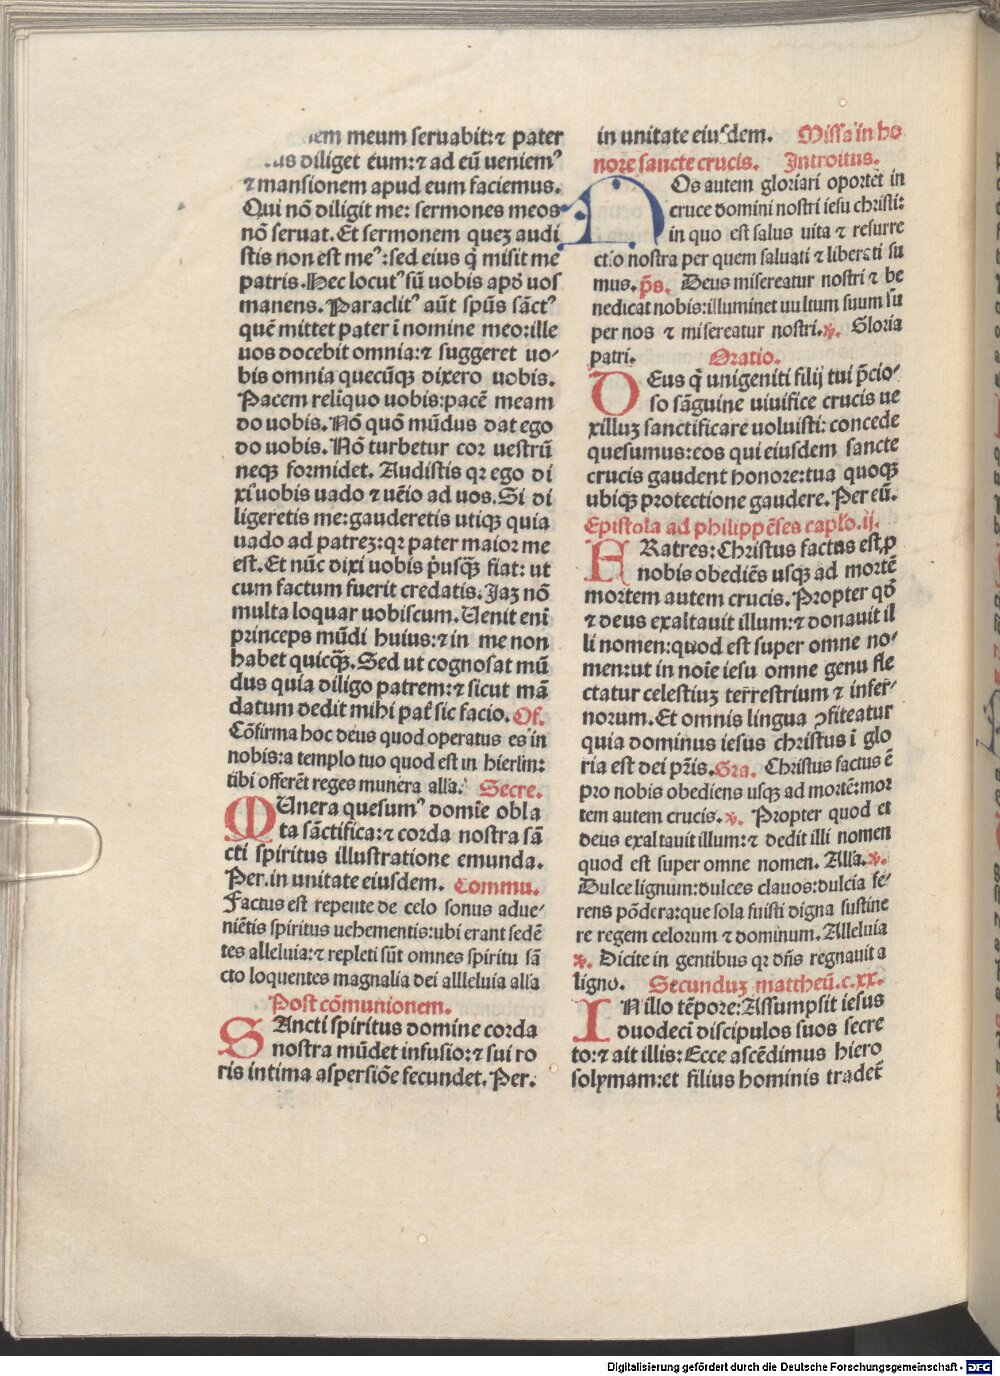 meum seruabit:⁊ pater
diliget eum:⁊ ad eū ueniemꝰ
⁊ mansionem apud eum faciemus.
Qui nō diligit me: sermones meos
nō seruat. Et sermonem quez audi
stis non est meꝰ:sed eius q̄ misit me
patris. Hec locutꝰ sū uobis apd̄ uos
manens. Paraclitꝰ aūt spūs sāctꝰ
quē mittet pater ī nomine meo:ille
uos docebit omnia:⁊ suggeret uo-
bis omnia quecūqꝫ dixero uobis.
Pacem relīquo uobis:pacē meam
do uobis. Nō quō mūdus dat ego
do uobis. Nō turbetur cor uestrū
neqꝫ formidet. Audistis qꝛ ego di
xi uobis uado ⁊ uēio ad uos. Si di
ligeretis me:gauderetis utiqꝫ quia
uado ad patreꝫ:qꝛ pater maior me
est. Et nūc dixi uobis p̄usqꝫ̄ fiat: ut
cum factum fuerit credatis. Jaꝫ nō
multa loquar uobiscum. Uenit enī
princeps mūdi huius:⁊ in me non
habet quicqꝫ̄. Sed ut cognosat mū
dus quia diligo patrem:⁊ sicut mā
datum dedit mihi pat̄ sic facio. Of.
Cōfirma hoc deus quod operatus es in
nobis:a templo tuo quod est in hierlm:
tibi offerēt reges munera alla. Secre.
MUnera quesumꝰ domīe obla
ta sāctifica:⁊ corda nostra sā
cti spiritus illustratione emunda.
Per.in unitate eiusdem. Commu.
Factus est repente de celo sonus adue-
niētis spiritus uehementis:ubi erant sedē
tes alleluia:⁊ repleti sūt omnes spiritu sā
cto loquentes magnalia dei allleluia alla
Post cōmunionem.
SAncti spiritus domine corda
nostra mūdet infusio:⁊ sui ro
ris intima aspersiōe fecundet. Per.
in unitate eiusdem. Missa in ho
nore sancte crucis. Introitus.
NOs autem gloriari oportet in
cruce domini nostri iesu christi:
in quo est salus uita ⁊ resurre
ctio nostra per quem saluati ⁊ liberati su
mus. p̄s. Deus misereatur nostri ⁊ be
nedicat nobis:illuminet uultum suum su
per nos ⁊ misereatur nostri. ℣. Gloria
patri. Oratio.
DEus q̄ unigeniti filij tui p̄cio-
so sāguine uiuifice crucis ue
xilluꝫ sanctificare uoluisti: concede
quesumus:eos qui eiusdem sancte
crucis gaudent honore:tua quoqꝫ
ubiqꝫ protectione gaudere. Per eū.
Epistola ad philippēses caplo.ij.
FRatres:Christus factus est ꝓ
nobis obediēs usqꝫ ad mortē
mortem autem crucis. Propter qd̄
⁊ deus exaltauit illum:⁊ donauit il
li nomen:quod est super omne no-
men:ut in noīe iesu omne genu fle
ctatur celestiuꝫ terrestrium ⁊ infer-
norum. Et omnis lingua ꝯfiteatur
quia dominus iesus christus ī glo
ria est dei pr̄is. Gra. Christus factus ē
pro nobis obediens usqꝫ ad mortē:mor
tem autem crucis. ℣. Propter quod et
deus exaltauit illum:⁊ dedit illi nomen
quod est super omne nomen. Alla. ℣.
Dulce lignum:dulces clauos:dulcia fe-
rens pōdera:que sola fuisti digna sustine
re regem celorum ⁊ dominum. Alleluia
℣. Dicite in gentibus qꝛ dn̄s regnauit a
ligno. Secunduꝫ mattheū.c.xx.
IN illo tēpore:Assumpsit iesus
duodecī discipulos suos secre
to:⁊ ait illis:Ecce ascēdimus hiero
solymam:et filius hominis tradet̄
Digitalisierung gefördert durch die Deutsche Forschungsgemeinschaft - DFG